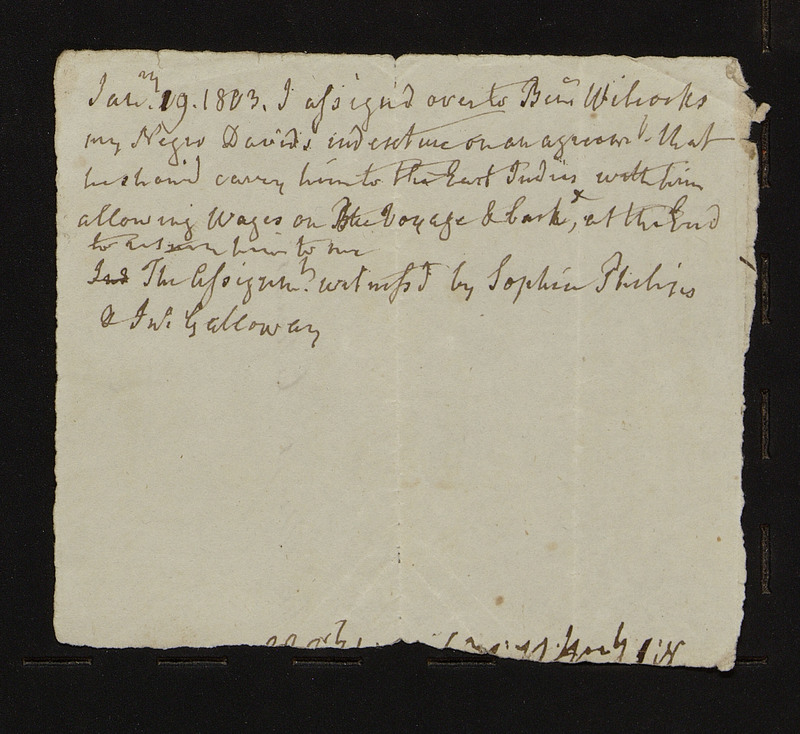 Janry. 19. 1803. I assign'd over to Benj Wilcocks
my Negro David's indenture on an agreemt. that
he shou'd carry him to the East Indies with him
allowing Wages on the Voyage & back, x at the End
to return him to me
The Assignmt. witness'd by Sophia Philips
& Jno. Galloway